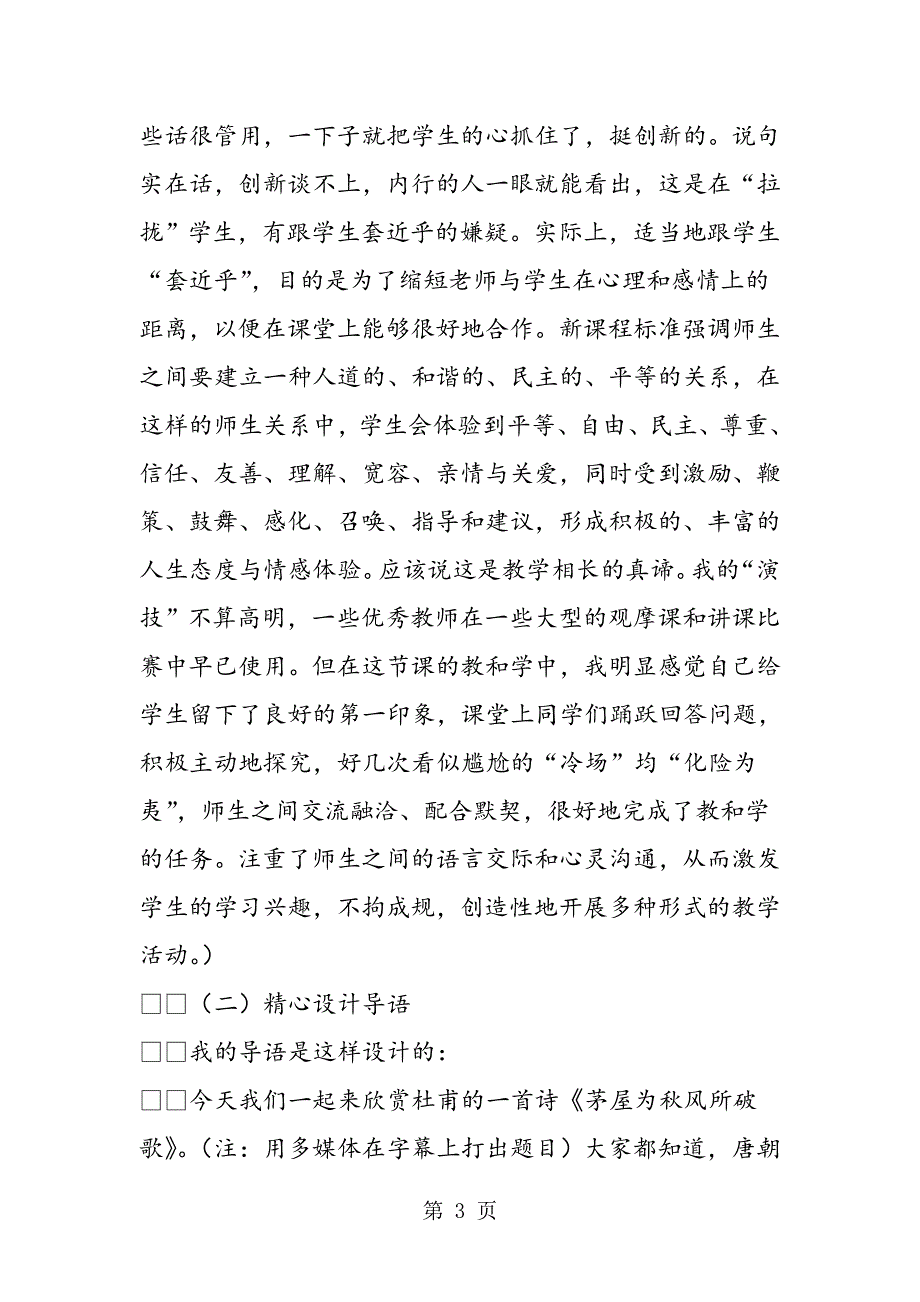 些话很管用，一下子就把学生的心抓住了，挺创新的。说句
实在话，创新谈不上，内行的人一眼就能看出，这是在“拉
拢”学生，有跟学生套近乎的嫌疑。实际上，适当地跟学生
“套近乎”，目的是为了缩短老师与学生在心理和感情上的
距离，以便在课堂上能够很好地合作。新课程标准强调师生
之间要建立一种人道的、和谐的、民主的、平等的关系，在
这样的师生关系中，学生会体验到平等、自由、民主、尊重、
信任、友善、理解、宽容、亲情与关爱，同时受到激励、鞭
策、鼓舞、感化、召唤、指导和建议，形成积极的、丰富的
人生态度与情感体验。应该说这是教学相长的真谛。我的“演
技”不算高明，一些优秀教师在一些大型的观摩课和讲课比
赛中早已使用。但在这节课的教和学中，我明显感觉自己给
学生留下了良好的第一印象，课堂上同学们踊跃回答问题，
积极主动地探究，好几次看似尴尬的“冷场”均“化险为
夷”，师生之间交流融洽、配合默契，很好地完成了教和学
的任务。注重了师生之间的语言交际和心灵沟通，从而激发
学生的学习兴趣，不拘成规，创造性地开展多种形式的教学
活动。）
□□（二）精心设计导语
□□我的导语是这样设计的：
□□今天我们一起来欣赏杜甫的一首诗《茅屋为秋风所破
歌》。（注：用多媒体在字幕上打出题目）大家都知道，唐朝
第 3 页